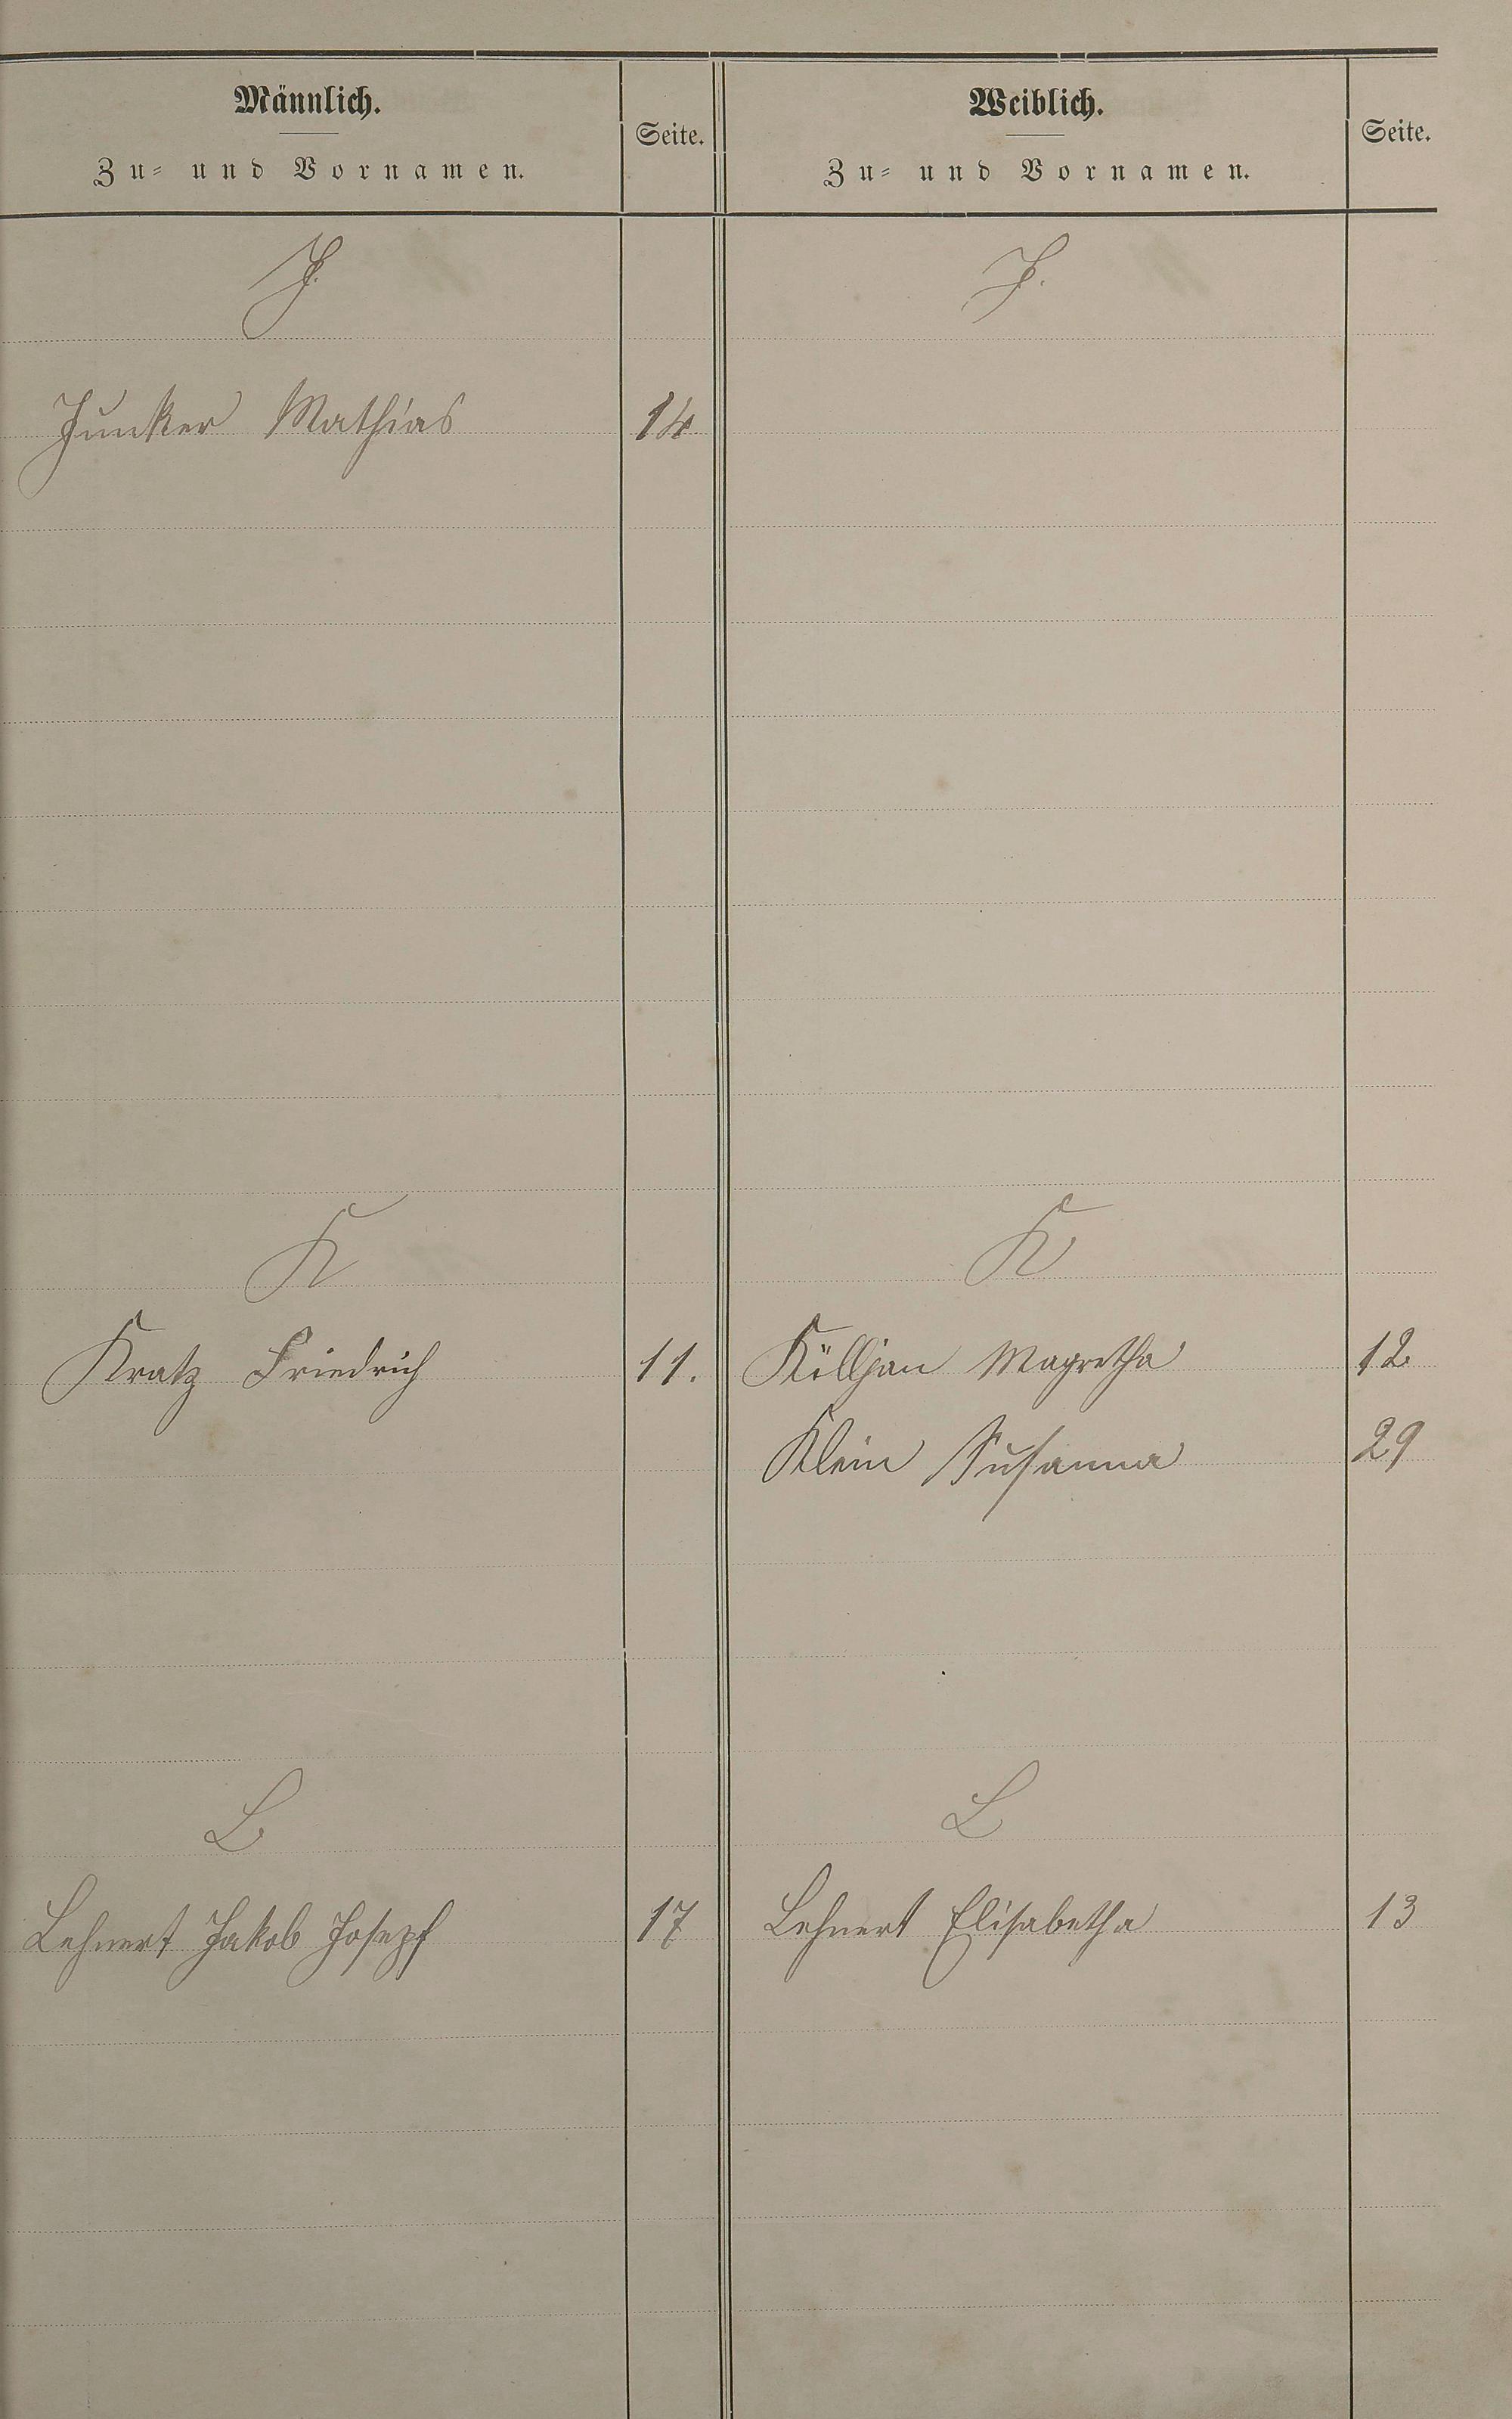 Männlich.
Zu- und Vornamen.
Seite.
Weiblich.
Zu- und Vornamen.
Seite.
J.
J.
Junker Mathias 14
K
K
Kratz Friedrich 11.
Killjan Magretha 12
Klein Susanna 29
L
L
Lehnert Jakob Josepf 17
Lehnert Elisabetha 13